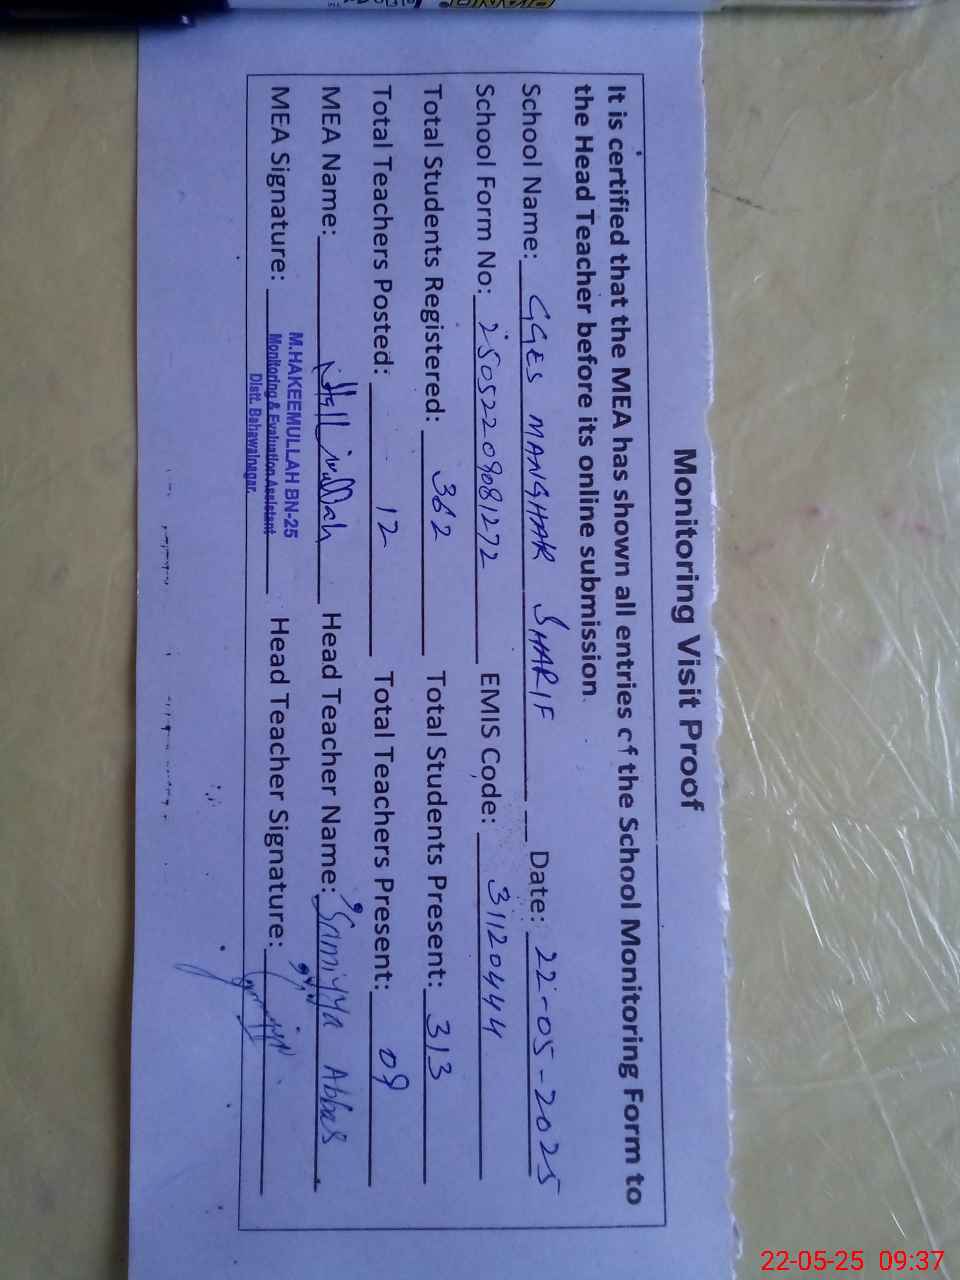 Monitoring Visit Proof
It is certified that the MEA has shown all entries of the School Monitoring Form to
the Head Teacher before its online submission.
School Name: GGES MANGHAR SHARIF Date: 22-05-2025
School Form No: 25052209081272 EMIS Code: 31120444
Total Students Registered: 362 Total Students Present: 313
Total Teachers Posted: 12 Total Teachers Present: 09
MEA Name: Head Teacher Name: Samiyya Abbas
M.HAKEEMULLAH BN-25
MEA Signature: Monitoring & Evaluation Assistant Head Teacher Signature:
Distt. Bahawalnagar.
22-05-25 09:37